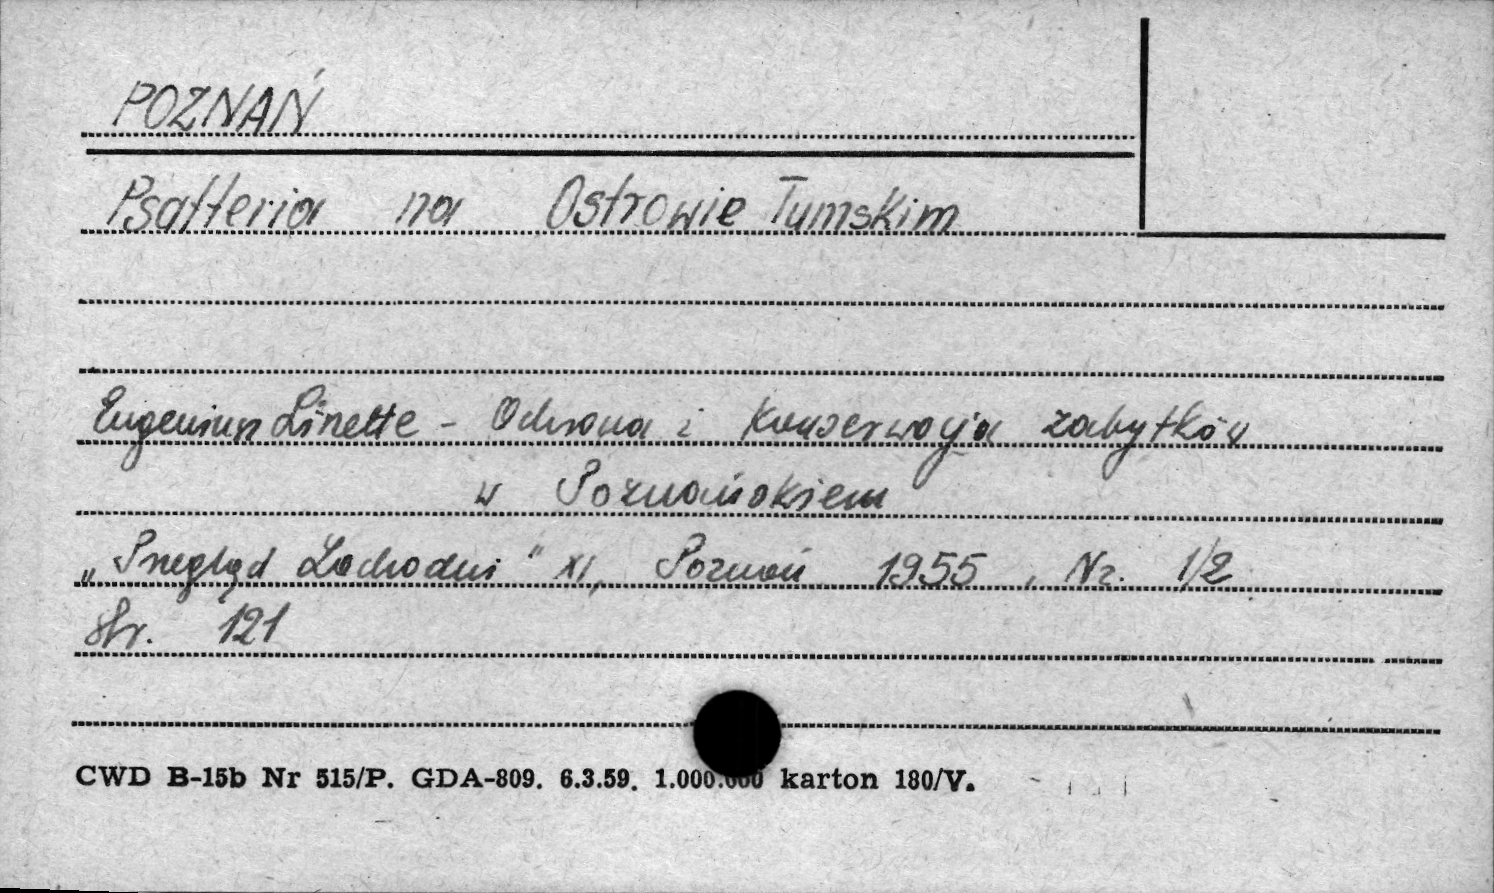 POZNAŃ
Psałteria na Ostrowie Tumskim
Eugeniusz Linette - Ochrona i Konserwacja zabytków
w Poznańskiem
„Przegląd Zachodni" XI, Poznań 1955, Nr. 1/2
str. 121
CWD B-15b Nr 515/P. GDA-809. 6.3.59. 1.000.000 karton 180/V.